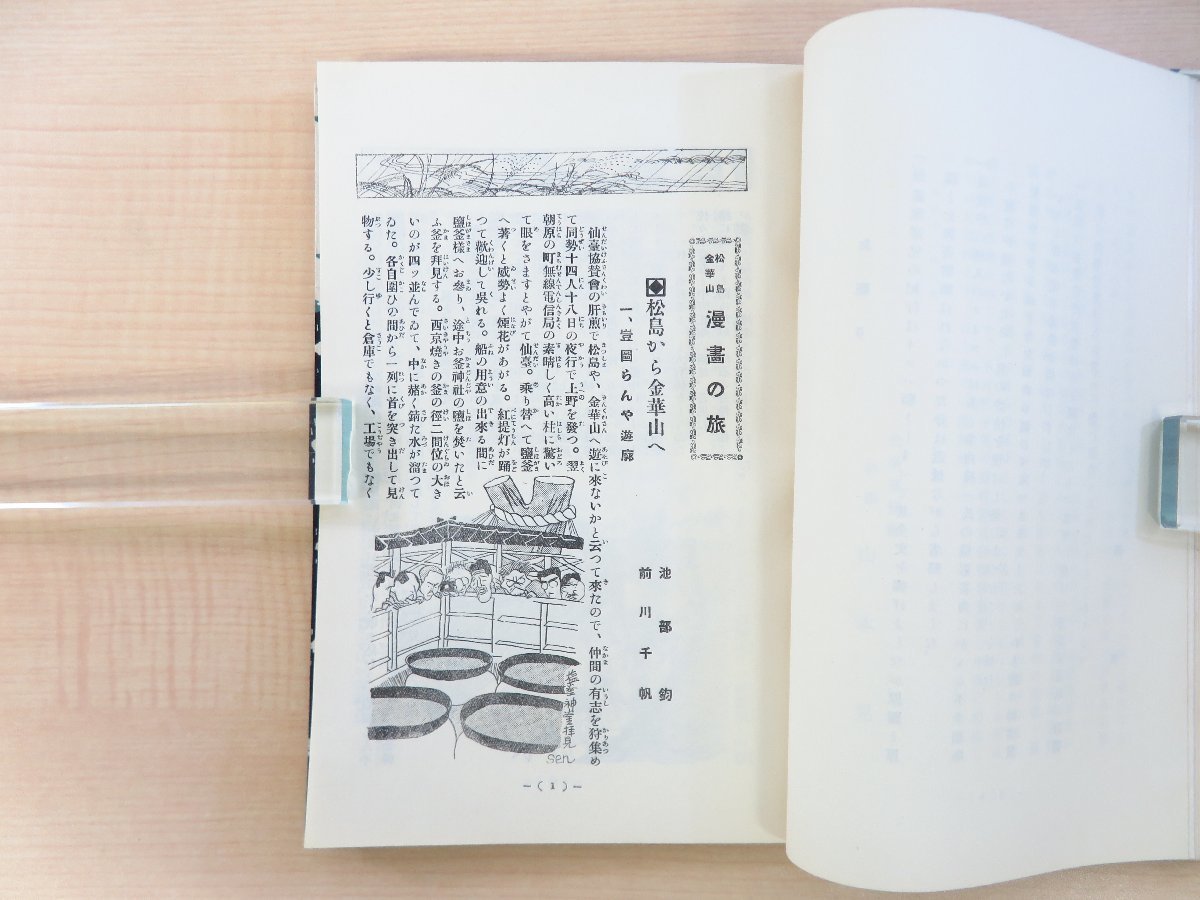 松島
金華山
漫畵の旅
松島から金華山へ
一、豈圖らんや遊廓
池部鈞
前川千帆
仙臺協賛會の肝煎で松島や、金華山へ遊に來ないかと云つて來たので、仲間の有志を狩集め
て同勢十四人十八日の夜行で上野を發つ。翌
朝原の町無線電信局の素晴しく高い柱に驚い
て眼をさますとやがて仙臺。乘り替へて鹽釜
へ著くと威勢よく煙花があがる。紅提灯が踊
つて歡迎して呉れる。船の用意の出來る間に
鹽釜樣へお參り、途中お釜神社の鹽を焚いたと云
ふ釜を拜見する。西京燒きの釜の徑二間位の大き
いのが四ッ並んでゐて、中に赭く錆た水が溜つて
ゐた。各自圍ひの間から一列に首を突き出して見
物する。少し行くと倉庫でもなく、工場でもなく
神釜拝見
Sen
―(1)―